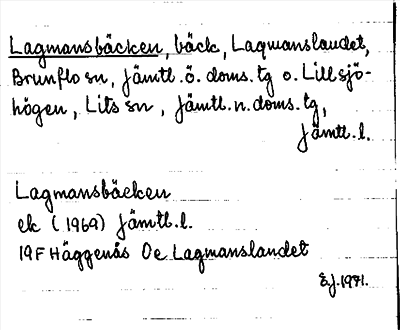 Lagmansbäcken, bäck, Lagmanslandet,
Brunflo sn, Jämtl. ö. doms. tg o. Lillsjö-
högen, Lits sn, Jämtl. n. doms. tg,
Jämtl. l.
Lagmansbäcken
ek (1969) Jämtl. l.
19F Häggenås 0e Lagmanslandet
EJ. 1971.